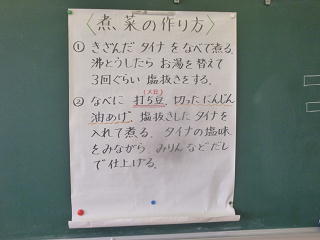 〈煮菜の作り方〉
① きざんだ タイナ をなべで煮る。
沸とうしたら お湯を替えて
3回ぐらい 塩抜きをする。
(大豆)
② なべに 打ち豆、切ったにんじん
油あげ、塩抜きした タイナを
入れて煮る。 タイナの塩味
をみながら みりんなどだし
で仕上げる。